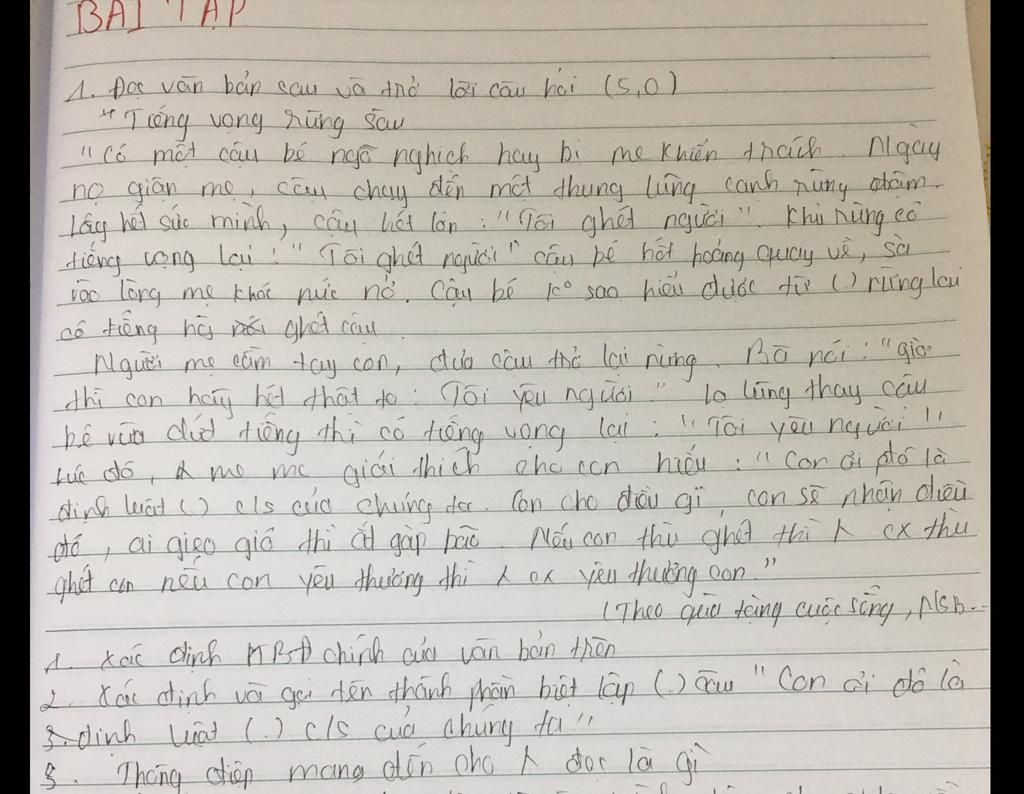 BÀI TẬP
1. Đọc văn bản sau và trả lời câu hỏi (5,0)
* Tiếng vọng rừng sâu
"Có một cậu bé ngỗ nghịch hay bị mẹ khiển trách. Ngày
nọ giận mẹ, cậu chạy đến một thung lũng cạnh rừng rậm.
Lấy hết sức mình, cậu hét lớn: "Tôi ghét người". Khu rừng có
tiếng vọng lại: "Tôi ghét người" cậu bé hốt hoảng quay về, sà
vào lòng mẹ khóc nức nở. Cậu bé k° sao hiểu được từ (.) rừng lại
có tiếng ng ghét cậu
Người mẹ cầm tay con, đưa cậu trở lại rừng. Bà nói: "giờ
thì con hãy hét thật to: Tôi yêu người" Lạ lùng thay cậu
bé vừa dứt tiếng thì có tiếng vọng lại: "Tôi yêu người"
Lúc đó, mẹ mc giải thích cho con hiểu: "Con ơi đó là
định luật (.) c/s của chúng ta. Con cho điều gì, con sẽ nhận điều
đó, ai gieo gió thì ắt gặp bão. Nếu con thù ghét thì ng cx thù
ghét con nếu con yêu thương thì ng cx yêu thương con."
(Theo quà tặng cuộc sống, NSB..
1. Xác định PTBĐ chính của văn bản trên
2. Xác định và gọi tên thành phần biệt lập (.) câu "Con ơi đó là
3. định luật (.) c/s của chúng ta"
3. Thông điệp mang đến cho ng đọc là gì